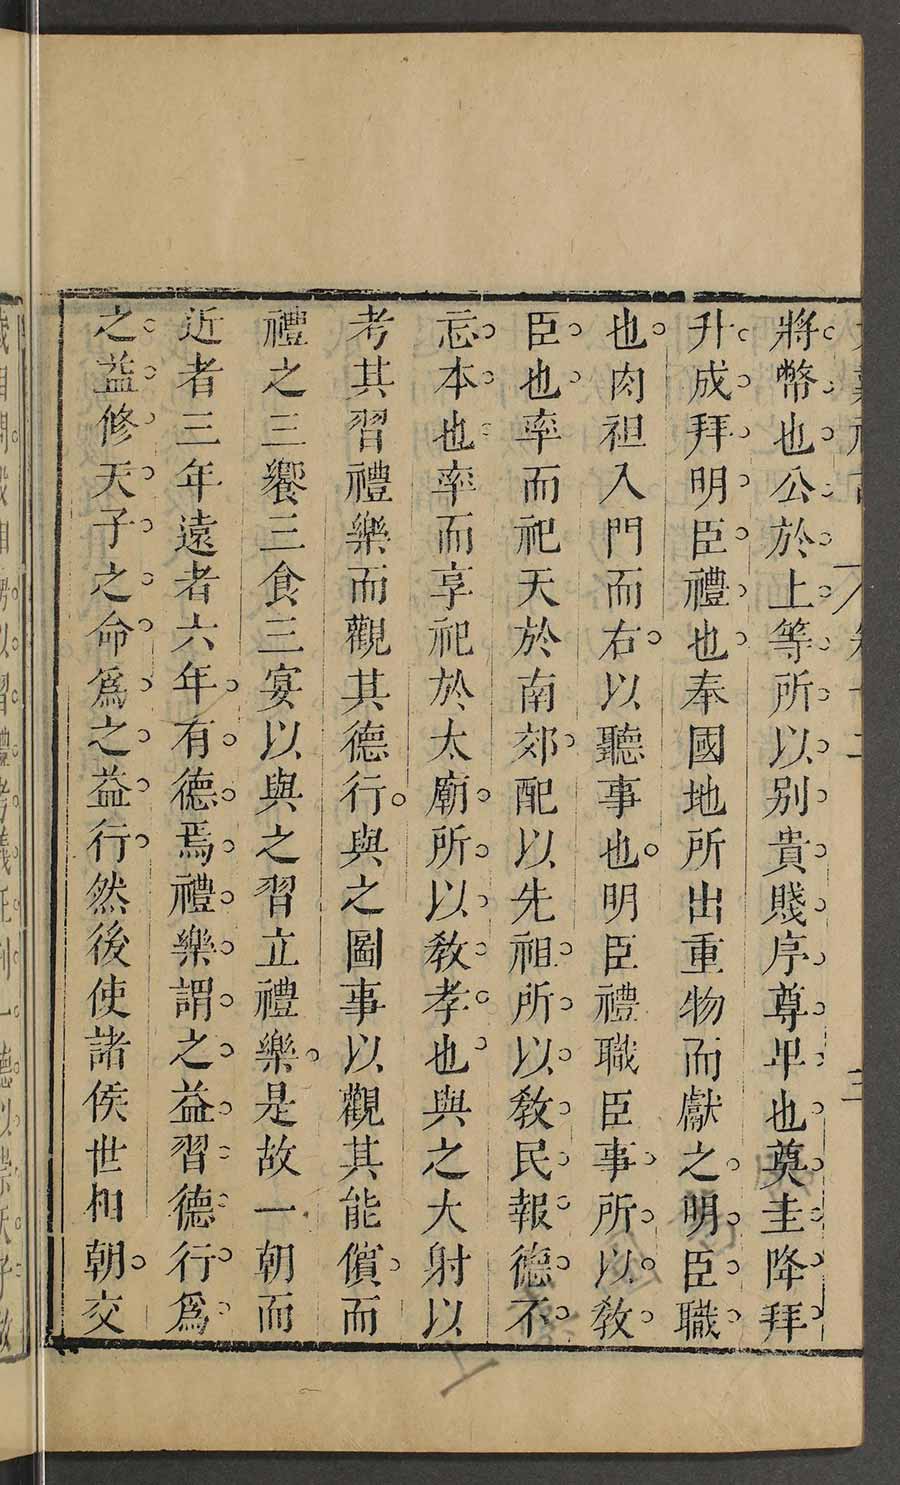 將幣也公於上等所以别貴賤序尊𤰞也奠圭降拜
升成拜明臣禮也奉國地所出重物而獻之明臣職
也肉袒入門而右以聽事也明臣禮職臣事所以敎
臣也率而祀天於南郊配以先祖所以敎民報德不
忘本也率而享祀於太廟所以敎孝也與之大射以
考其習禮樂而觀其德行與之圖事以觀其能儐而
禮之三饗三食三宴以與之習立禮樂是故一朝而
近者三年遠者六年有德焉禮樂謂之益習德行爲
之益修天子之命爲之益行然後使諸侯世相朝交